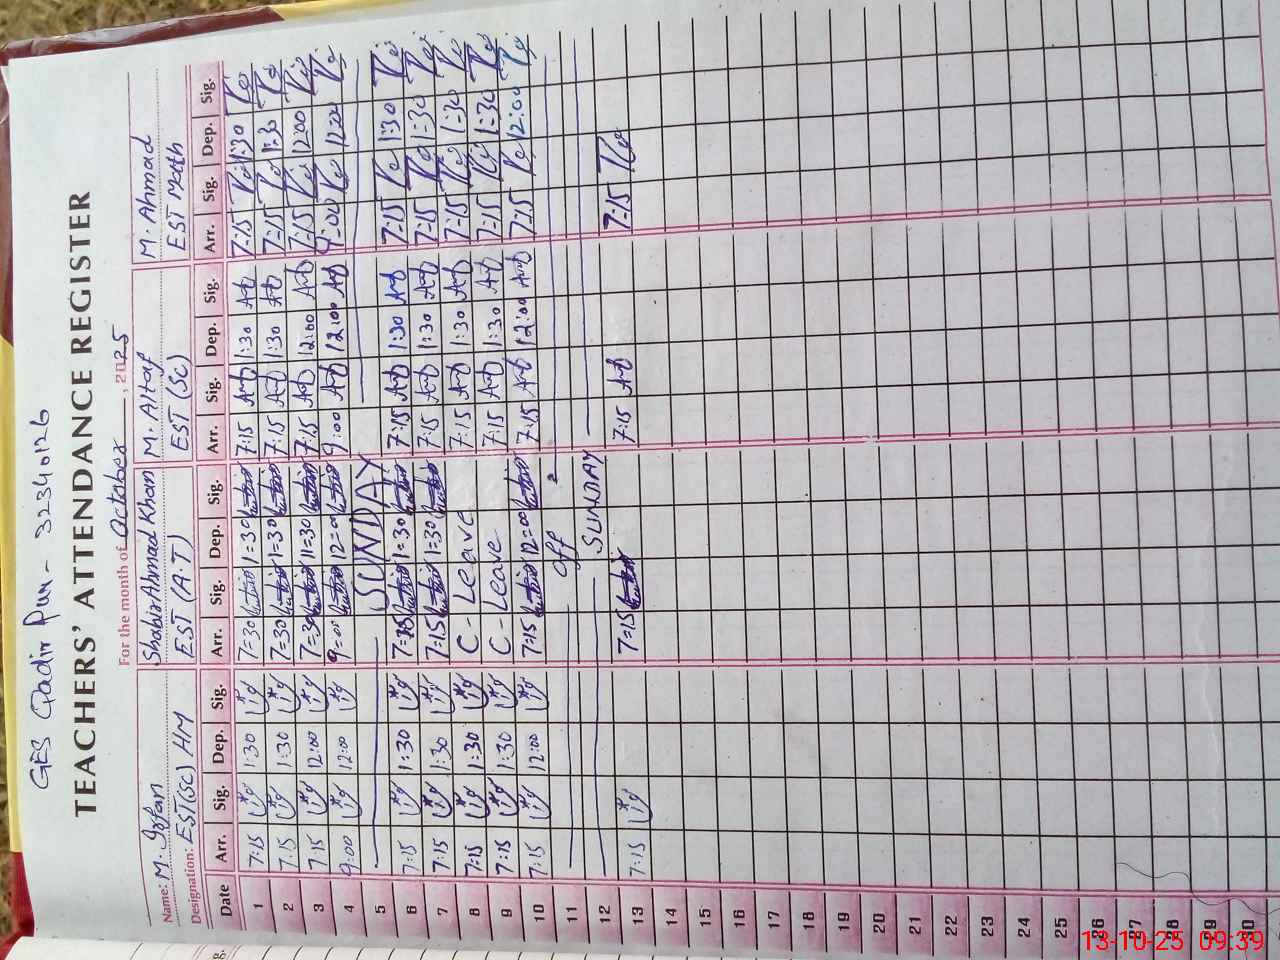 GES Qadir Pur - 32340126
TEACHERS' ATTENDANCE REGISTER
For the month of October, 2025
Name: M. Irfan Shabbir Ahmad Khan M. Altaf M. Ahmad
Designation: EST(SC) HM EST (A.T) EST (SC) EST Math
Date Arr. Sig. Dep. Sig. Arr. Sig. Dep. Sig. Arr. Sig. Dep. Sig. Arr. Sig. Dep. Sig.
1 7:15 1:30 7=30 1=30 7:15 1:30 7:15 1:30
2 7:15 1:30 7=30 1=30 7:15 1:30 7:15 1:30
3 7:15 12:00 7=30 11=30 7:15 12:00 7:15 12:00
4 9:00 12:00 9=00 12=00 9:00 12:00 9:00 12:00
5 SUNDAY
6 7:15 1:30 7=15 1=30 7:15 1:30 7:15 1:30
7 7:15 1:30 7=15 1=30 7:15 1:30 7:15 1:30
8 7:15 1:30 C - Leave 7:15 1:30 7:15 1:30
9 7:15 1:30 C - Leave 7:15 1:30 7:15 1:30
10 7:15 12:00 7=15 12=00 7:15 12:00 7:15 12:00
11 off
12 SUNDAY
13 7:15 7=15 7:15 7:15
14
15
16
17
18
19
20
21
22
23
24
25
26
27
28
29
30
13-10-25 09:39